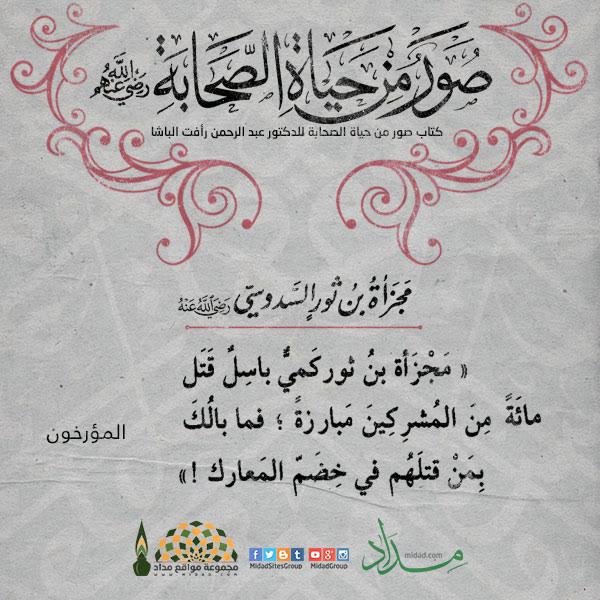 صُوَرٌ مِنْ حَيَاةِ الصَّحَابَةِ رَضِيَ اللهُ عَنْهُمْ
كتاب صور من حياة الصحابة للدكتور عبد الرحمن رأفت الباشا
مَجْزَأَةُ بْنُ ثَوْرٍ السَّدُوسِيّ رَضِيَ اللَّهُ عَنْهُ
« مَجْزَأة بنُ ثور كَميٌّ باسِلٌ قَتَل
مائَةً مِنَ المُشرِكِينَ مَبارزةً ؛ فما بالُكَ
بِمَنْ قتلَهُم في خِضَمّ المَعارك ! »
المؤرخون
مجموعة مواقع مداد
WWW.MIDAD.COM
MidadSitesGroup
MidadGroup
midad.com
مداد